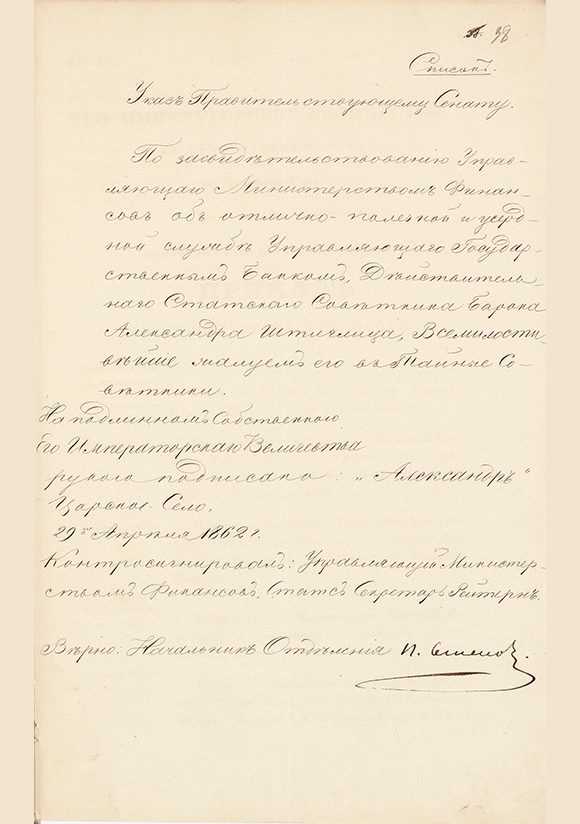 38
Списокъ.
Указъ Правительствующему Сенату.
По засвидѣтельствованію Управ-
ляющаго Министерствомъ Финан-
совъ объ отлично-полезной и усерд-
ной службѣ Управляющаго Государ-
ственнымъ Банкомъ, Дѣйствитель-
наго Статскаго Совѣтника Барона
Александра Штиглица, Всемилости-
вѣйше жалуемъ его въ Тайные Со-
вѣтники.
На подлинномъ Собственного
Его Императорскаго Величества
рукого подписано: „Александръ"
Царское-Село,
29го Апрѣля 1862 г.
Контросигнировалъ: Управляющій Министер-
ствомъ Финансовъ, Статсъ Секретарь Рейтернъ.
Вѣрно: Начальникъ Отдѣленія